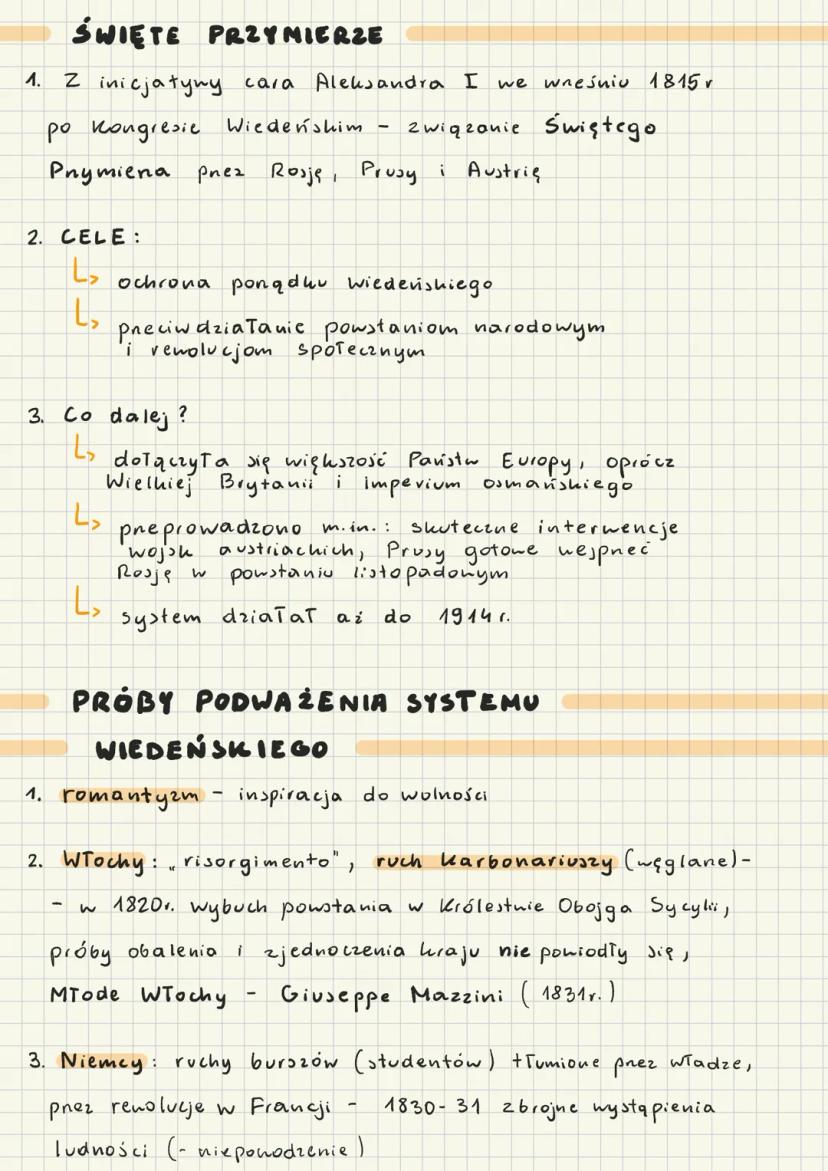 ŚWIĘTE PRZYMIERZE
1. Z inicjatywy cara Aleksandra I we wrześniu 1815r
po Kongresie Wiedeńskim - związanie Świętego
Przymierza przez Rosję, Prusy i Austrię
2. CELE:
↳ ochrona porządku wiedeńskiego
↳ przeciwdziałanie powstaniom narodowym
i rewolucjom społecznym
3. Co dalej?
↳ dołączyła się większość Państw Europy, oprócz
Wielkiej Brytanii i imperium osmańskiego
↳ przeprowadzono m.in.: skuteczne interwencje
wojsk austriackich, Prusy gotowe wesprzeć
Rosję w powstaniu listopadowym
↳ system działał aż do 1914r.
PRÓBY PODWAŻENIA SYSTEMU
WIEDEŃSKIEGO
1. romantyzm - inspiracja do wolności
2. Włochy: „risorgimento", ruch karbonariuszy (węglarze)-
- w 1820r. wybuch powstania w Królestwie Obojga Sycylii,
próby obalenia i zjednoczenia kraju nie powiodły się,
Młode Włochy - Giuseppe Mazzini (1831r.)
3. Niemcy: ruchy burszów (studentów) tłumione przez władze,
przez rewolucje w Francji - 1830-31 zbrojne wystąpienia
ludności (- niepowodzenie)